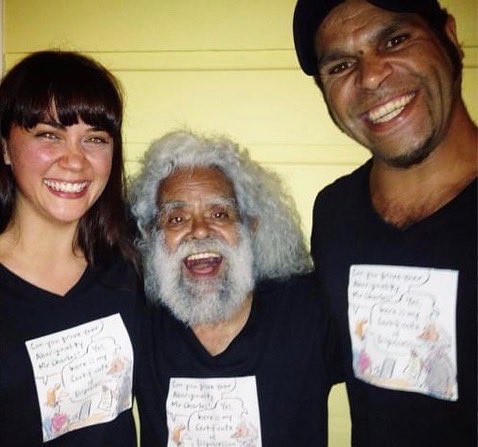 Can you prove your
Aboriginality
Mr Charles?
Yes,
here is my
Certificate
of
Dipossession
Can you prove your
Aboriginality
Mr Charles?
Yes,
here is my
Certificate
of
Can you prove your
Aboriginality
Mr Charles?
Yes,
here is my
Certificate
of